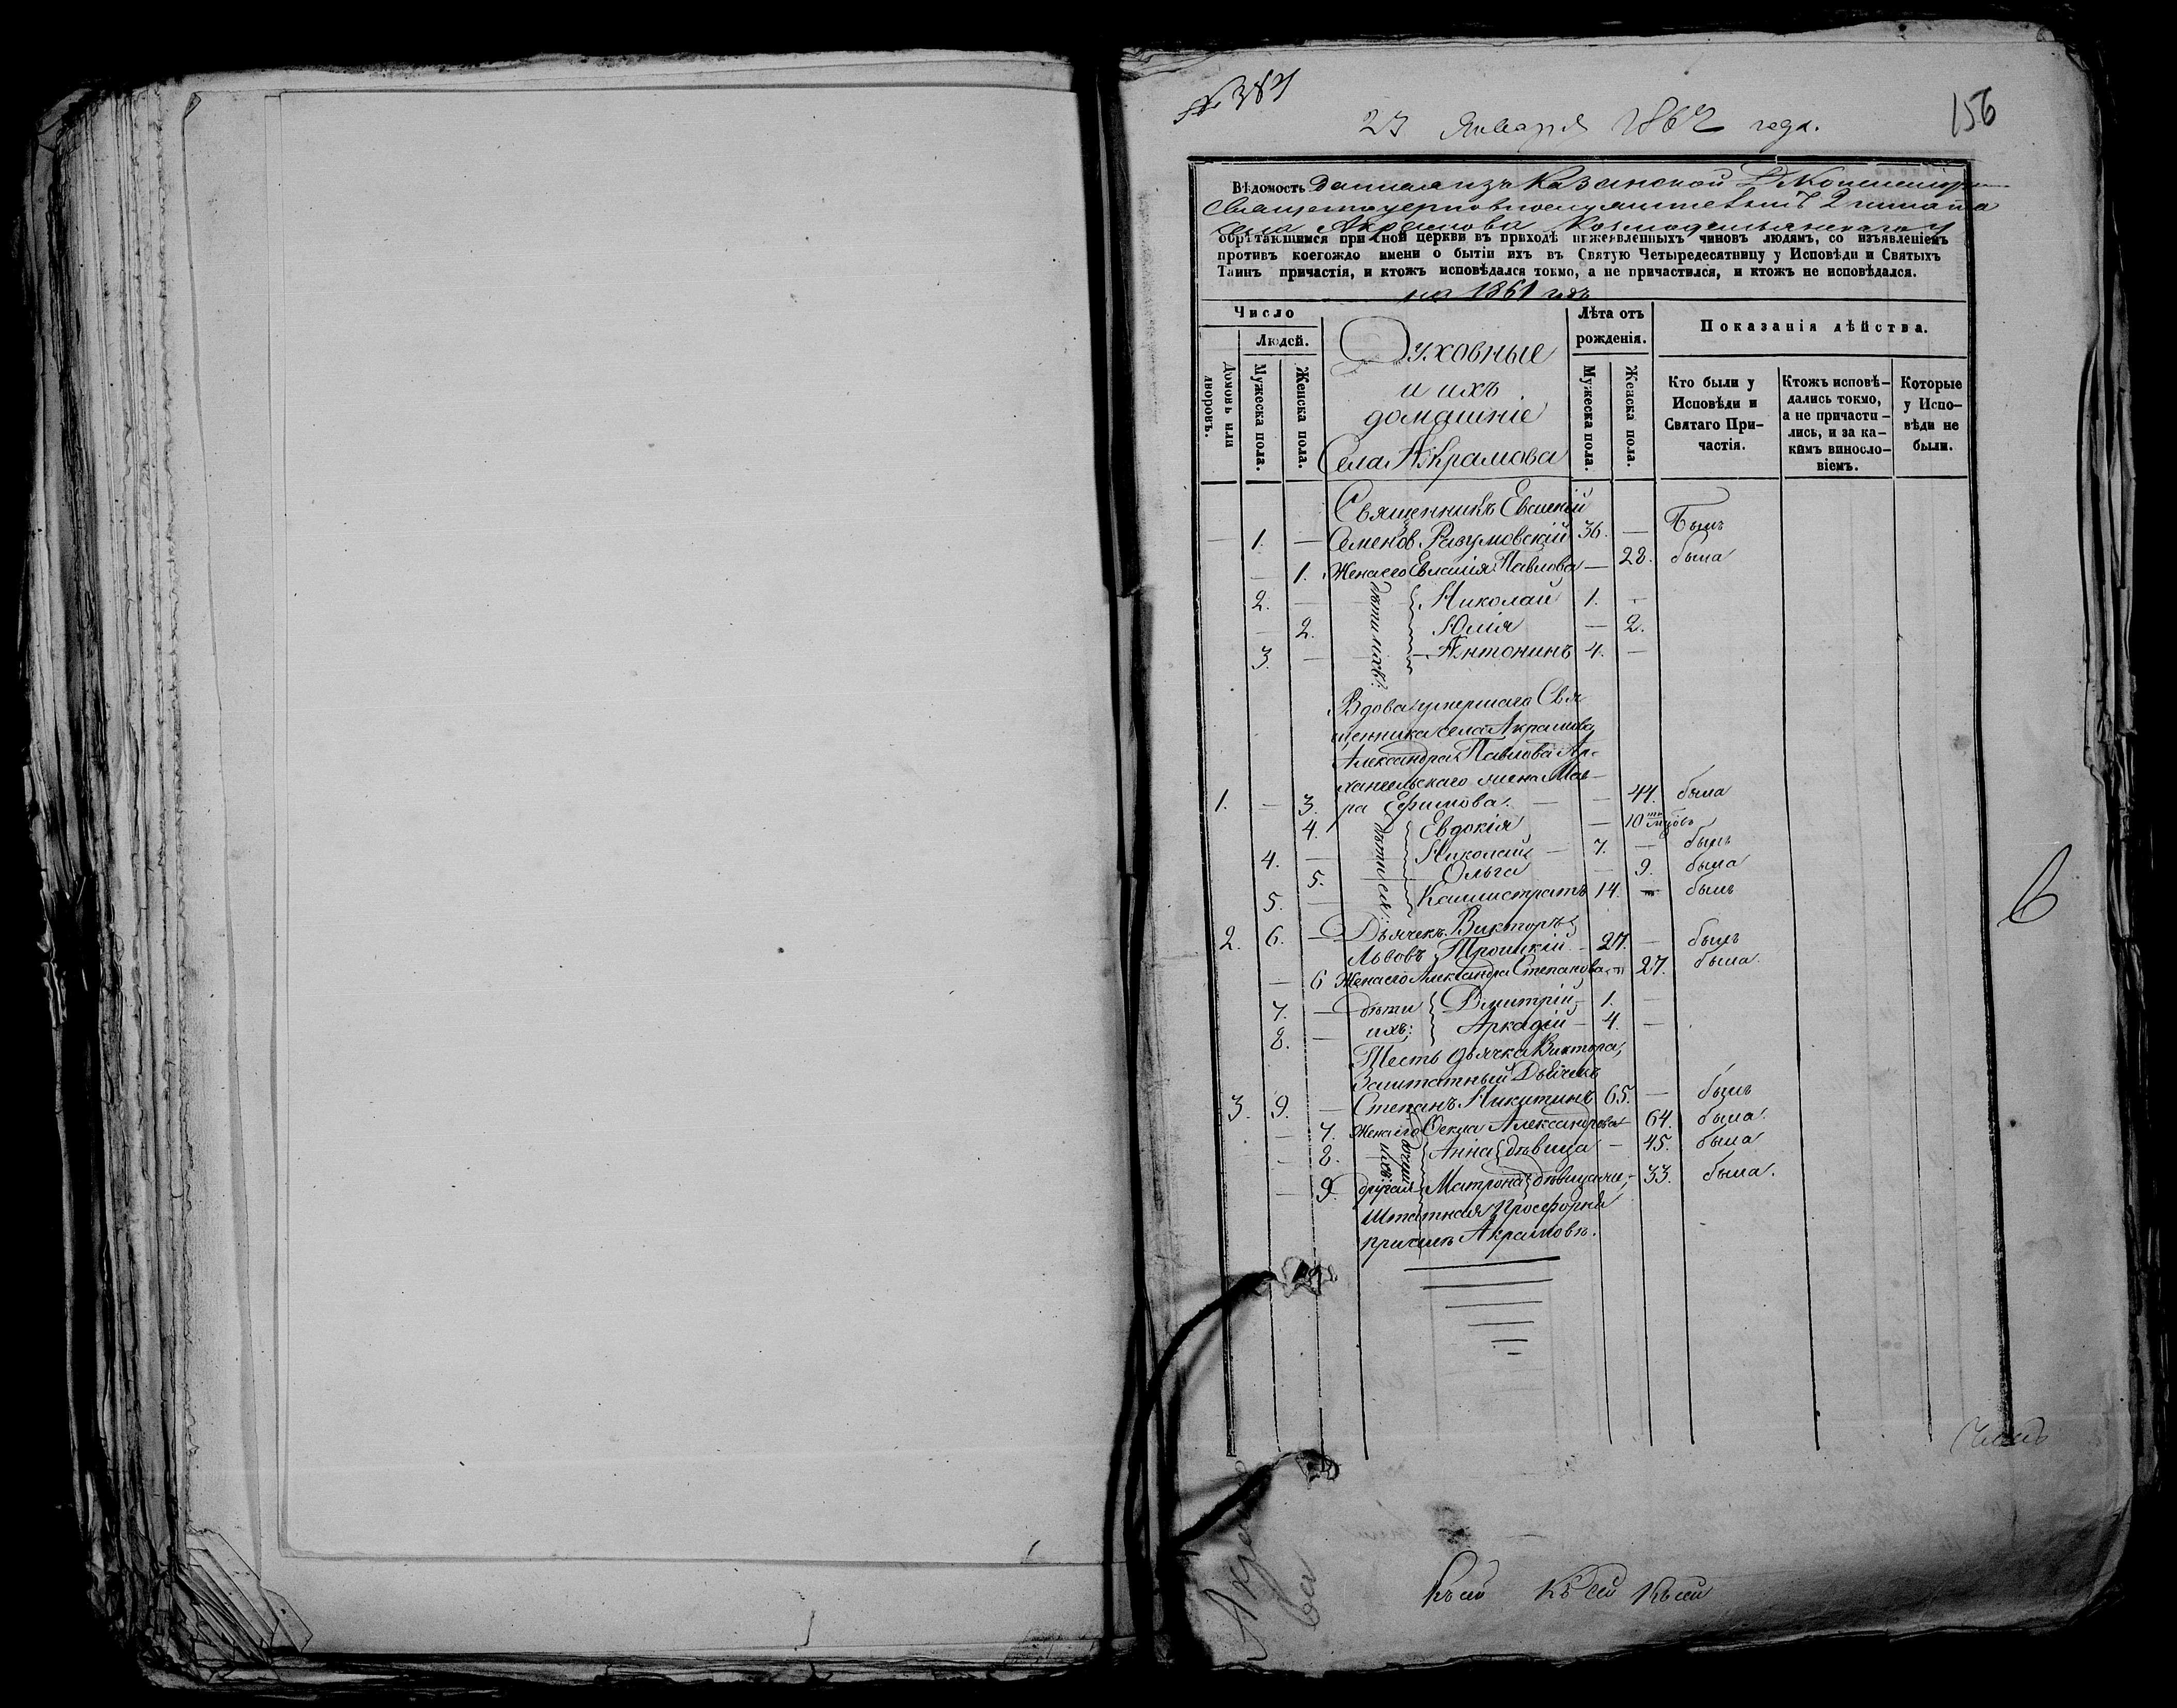 № 384
156
23 Января 1862 года.
Вѣдомость данная изъ Казанской Д Консисторіи
Священноцерковнослужителямъ
села Акрамова Козмодемьянскаго у
обрѣтающимся при сной церкви въ приходѣ нижеявленныхъ чиновъ людямъ, со изъявленіемъ
противъ коегождо имени о бытіи ихъ въ Святую Четыредесятницу у Исповѣди и Святыхъ
Таинъ причастія, и ктожъ исповѣдался токмо, а не причастился, и ктожъ не исповѣдался.
на 1861 годъ
Число
Людей.
Домовъ или дворовъ.
Мужеска пола.
Женска пола.
Духовные
и ихъ
домашніе
Села Акрамова
Лѣта отъ
рожденія.
Мужеска пола.
Женска пола.
Показанія дѣйства.
Кто были у
Исповѣди и
Святаго При-
частія.
Ктожъ исповѣ-
дались токмо,
а не причасти-
лись, и за ка-
кимъ винословіемъ.
Которые
у Испо-
вѣди не
были.
Священникъ Евсигній
— 1. — Семенов. Разумовскій 36. — Былъ
— 1. Жена его Евлалія Павлова — 28. была
дѣти ихъ:
2. — Николай 1. —
— 2. Юлія — 2.
3. — Антонинъ 4. —
Вдова умершаго Свя
щенника села Акрамова
Александра Павлова Ар-
хангельскаго жена Мав-
1. — 3. ра Ефимова. — — 44. была
дѣти ея:
4. Евдокія — 10 ти мцовъ
4. — Николай — 7. — былъ
5. Ольга — 9. была
5. — Каллистратъ 14. — былъ
2. 6. — Дьячекъ Викторъ
Львовъ Троицкій — 27. — былъ
— 6 Жена его Александра Степанова — 27. была.
7. — дѣти Дмитрій — 1. —
8. — ихъ: Аркадій — 4. —
Тесть дьячка Виктора,
Заштатный Дьячекъ
3. 9. — Степанъ Никитинъ 65. — былъ
— 7. Жена его Ѳекла Александрова 64. была.
дочери ихъ:
— 8. Анна дѣвица — 45. была
— 9. другая Матрона дѣвица же, — 33. была.
Штатная Просфорня
при селѣ Акрамовѣ.
6
Къ сей Къ сей Къ сей